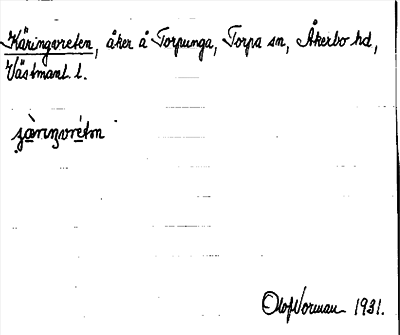 Käringvreten, åker å Torpunga, Torpa sn, Åkerbo hd,
Västmanl. l.
Olof Norman 1931.